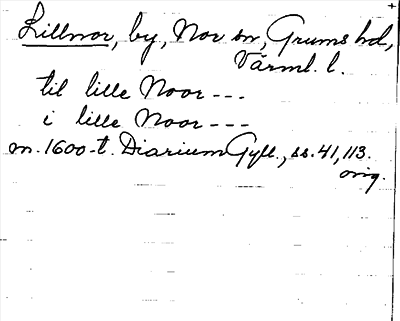 Lillnor, by, Nor sn, Grums hd,
Värml. l.
til lille Noor ---
i lille Noor ---
m. 1600-t. Diarium Gyll., ss. 41, 113.
orig.